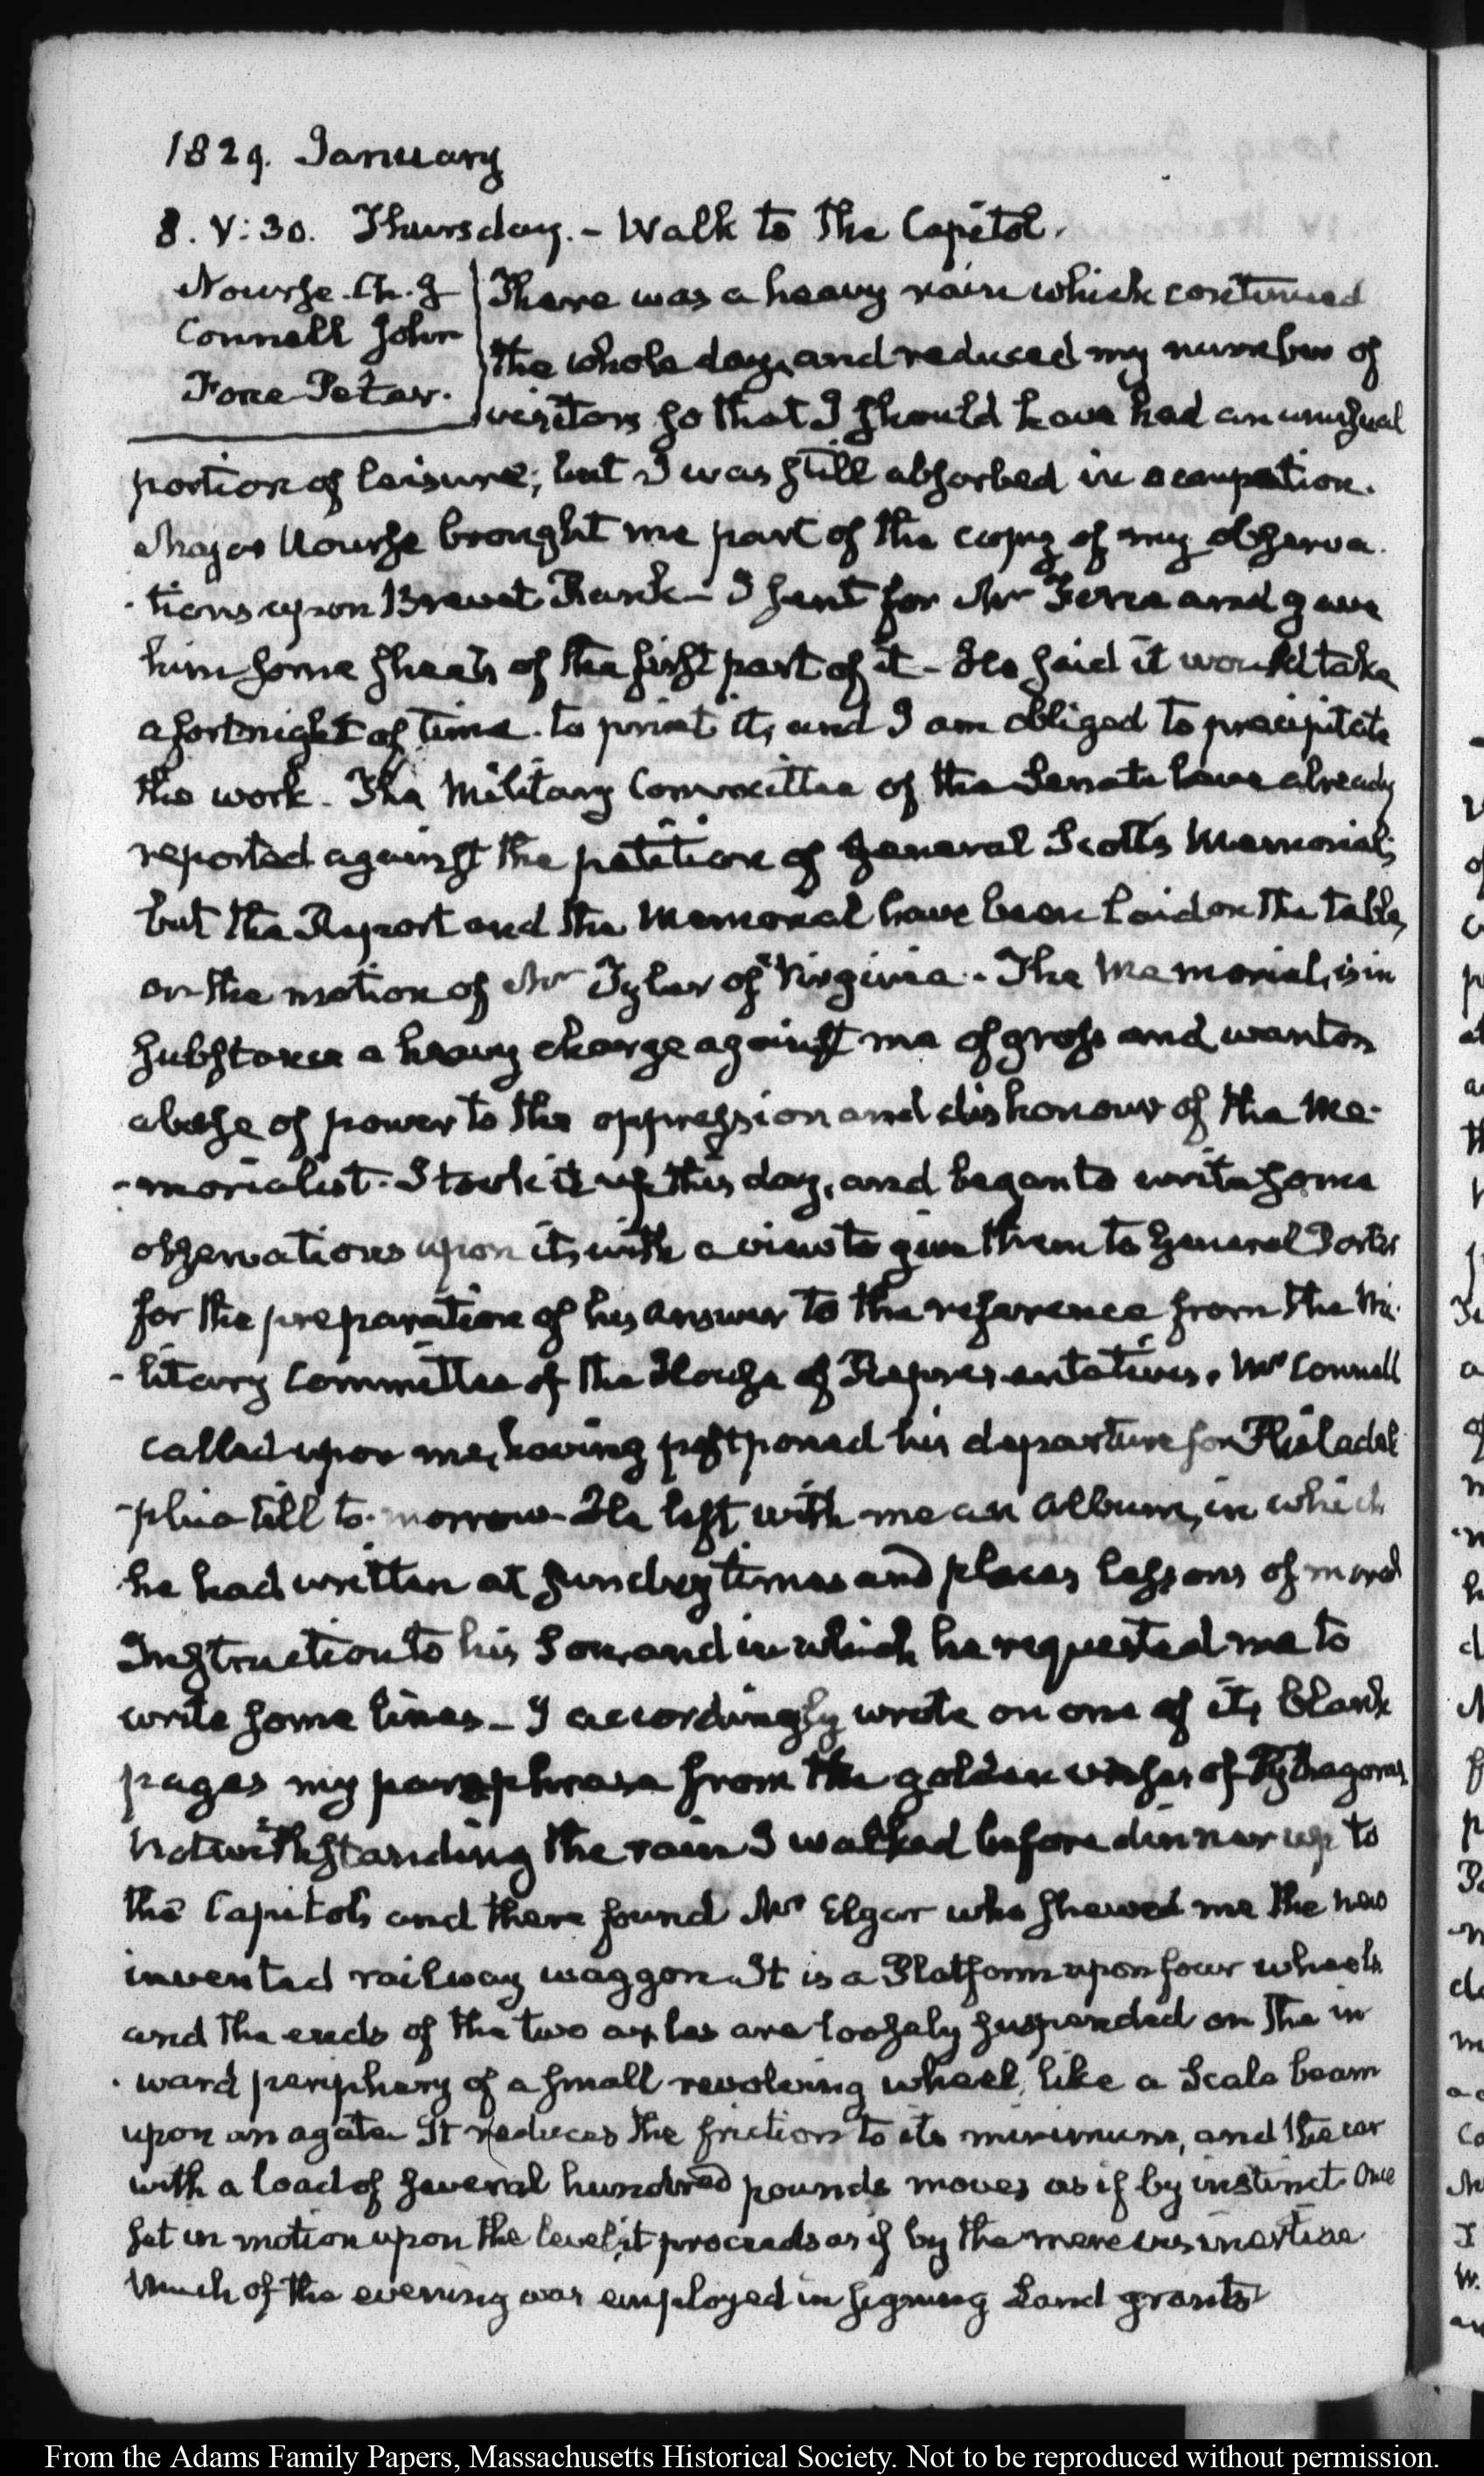 1829. January
8. V:30. Thursday. - Walk to the Capitol.
Nourse. Ch. J
Connell John
Force Peter.
There was a heavy rain which continued
the whole day, and reduced my number of
visitors so that I should have had an unusual
portion of leisure; but I was still absorbed in occupation.
Major Nourse brought me part of the copy of my observa-
-tions upon Brevet Rank - I sent for Mr Force and gave
him some sheets of the first part of it - He said it would take
a fortnight of time. to print it, and I am obliged to precipitate
the work. The Military Committee of the Senate have already
reported against the petition of General Scott's Memorial;
but the Report and the Memorial have been laid on the table,
on the motion of Mr Tyler of Virginia. - The Memorial, is in
substance a heavy charge against me of gross and wanton
abuse of power to the oppression and dishonour of the Me-
-morialist. I took it up this day, and began to write some
observations upon it, with a view to give them to General Porter
for the preparation of his answer to the reference from the Mi-
-litary Committee of the House of Representatives. Mr Connell
called upon me, having postponed his departure for Philadel
-phia till to-morrow - He left with me an Album, in which
he had written at sundry times and places lessons of moral
Instruction to his Son, and in which he requested me to
write some lines - I accordingly wrote on one of its blank
pages my paraphrase from the golden verses of Pythagoras
Notwithstanding the rain I walked before dinner up to
the Capitol, and there found Mr Elgar who shewed me the new
invented railway waggon. It is a Platform upon four wheels
and the ends of the two axles are loosely suspended on the in
-ward periphery of a small revolving wheel, like a Scale beam
upon an agate. It reduces the friction to its minimum, and the car
with a load of several hundred pounds moves as if by instinct. Once
set in motion upon the level, it proceeds as if by the mere vis inertiae
Much of the evening was employed in signing Land grants
From the Adams Family Papers, Massachusetts Historical Society. Not to be reproduced without permission.